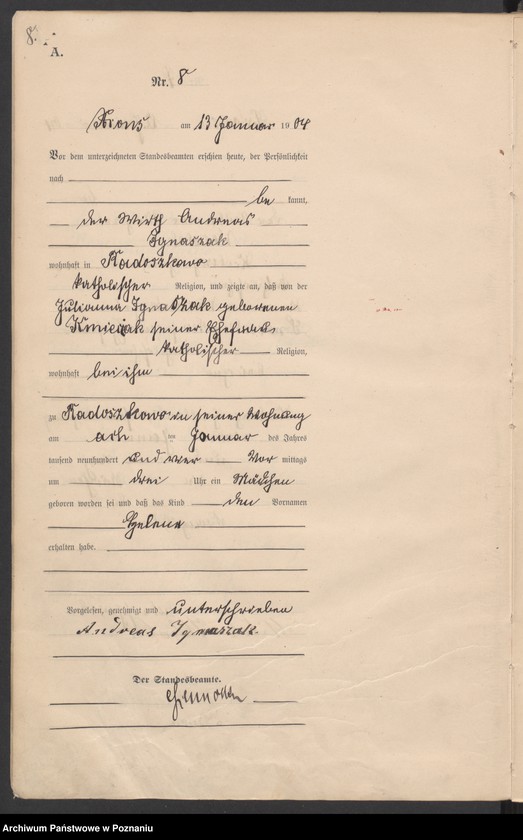 8.
A.
Nr. 8
Xions am 13 Januar 1904
Vor dem unterzeichneten Standesbeamten erschien heute, der Persönlichkeit
nach
be kannt,
der Wirth Andreas
Ignaszak
wohnhaft in Radoszkowo
katholischer Religion, und zeigte an, daß von der
Julianna Ignaszak geborenen
Kmieciak seiner Ehefrau
katholischer Religion,
wohnhaft bei ihm
zu Radoszkowo in seiner Wohnung
am ten Januar des Jahres
tausend neunhundert und vier Vor mittags
um drei Uhr ein Mädchen
geboren worden sei und daß das Kind den Vornamen
Helene
erhalten habe.
Vorgelesen, genehmigt und unterschrieben
Andreas Ignaszak
Der Standesbeamte.
Archiwum Państwowe w Poznaniu